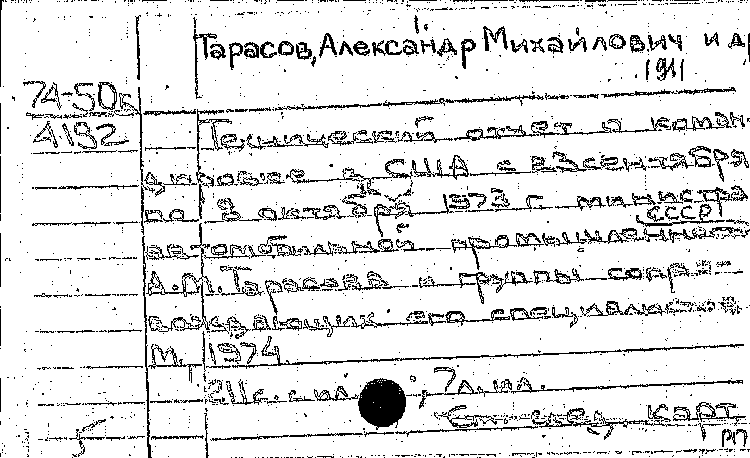 Тарасов, Александр Михайлович и др
1911
74-50к
4192
Технический отчет о коман-
дировке в США с 23 сентября
по 8 октября 1973 г. министра
СССР
автомобильной промышленности
А.М. Тарасова и группы сопро-
вождающих его специалистов.
М., 1974.
211 с. с ил., 7 л. ил.
См. след. карт.
РП